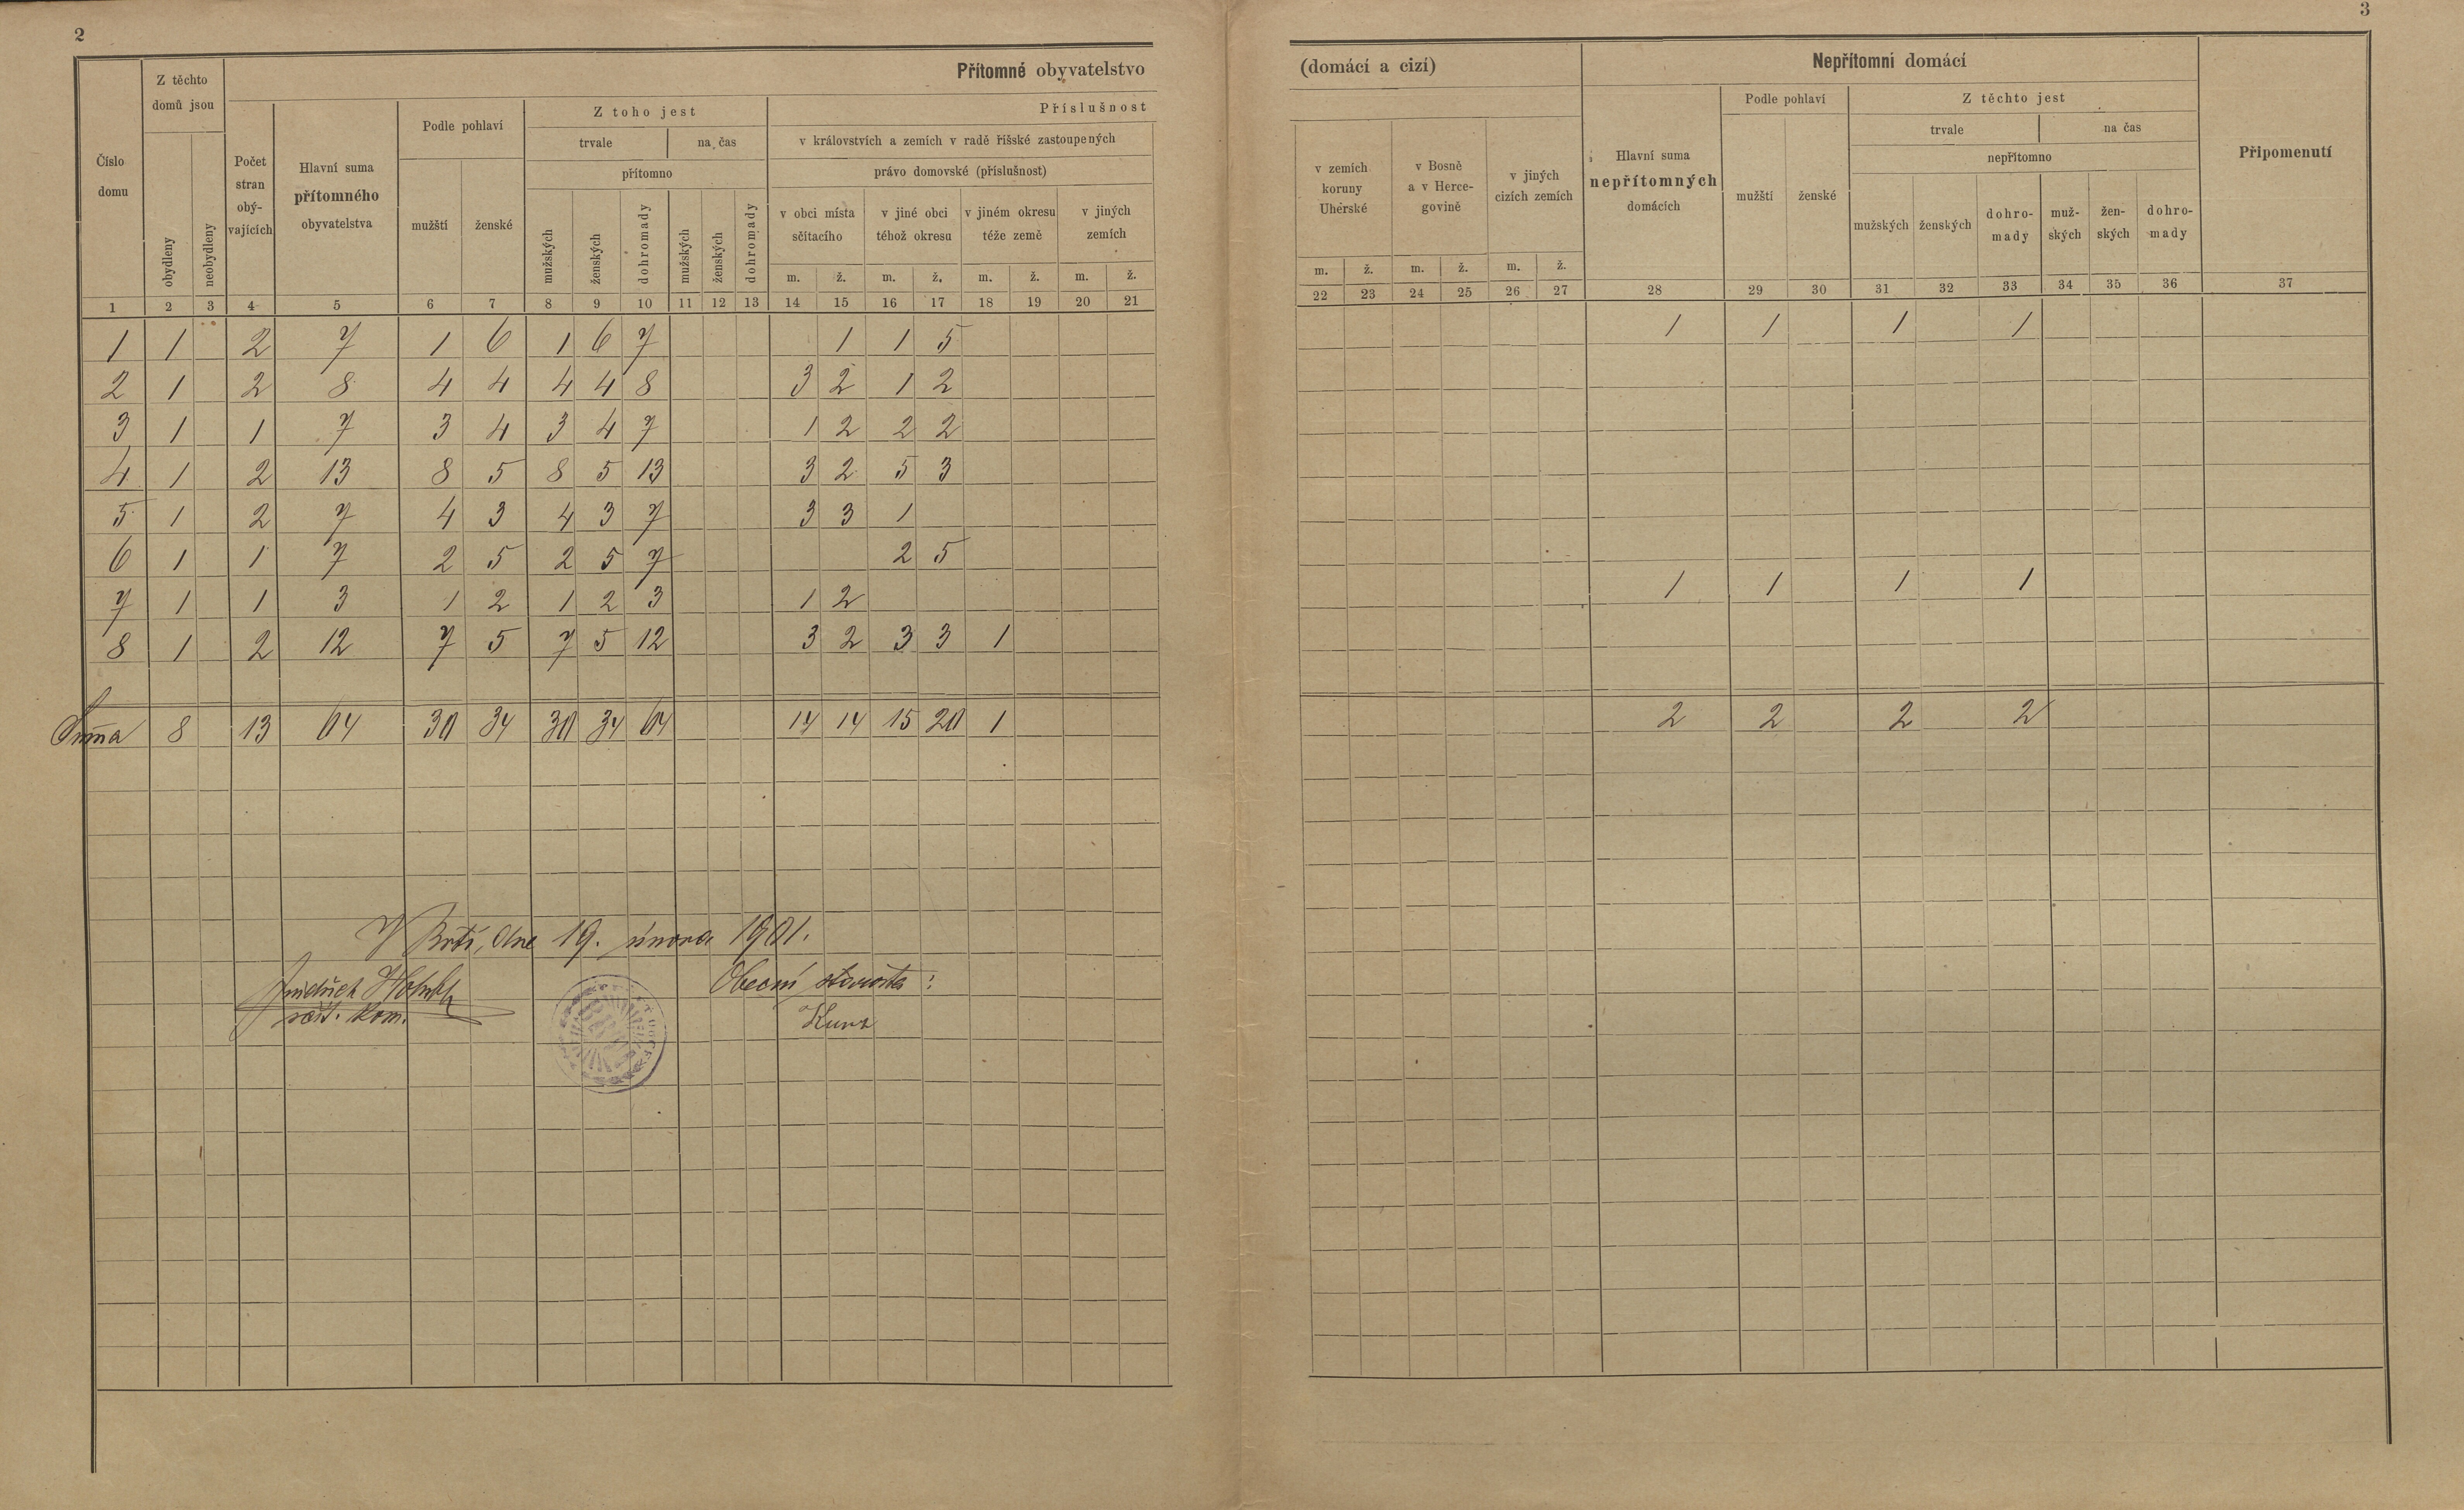 2
3
Přítomné obyvatelstvo
(domácí a cizí)
Nepřítomni domácí
Číslo domu
Z těchto domů jsou
obydleny
neobydleny
Počet stran obý-vajících
Hlavní suma přítomného obyvatelstva
Podle pohlaví
mužští
ženské
Z toho jest
trvale
na čas
přítomno
mužských
ženských
dohromady
mužských
ženských
dohromady
Příslušnost
v královstvích a zemích v radě říšské zastoupených
právo domovské (příslušnost)
v obci místa sčítacího
v jiné obci téhož okresu
v jiném okresu téže země
v jiných zemích
m. ž. m. ž. m. ž. m. ž.
v zemích koruny Uherské
v Bosně a v Herce-govině
v jiných cizích zemích
m. ž. m. ž. m. ž.
Hlavní suma nepřítomných domácích
Podle pohlaví
mužští
ženské
Z těchto jest
trvale
na čas
nepřítomno
mužských
ženských
dohro-mady
muž-ských
žen-ských
dohro-mady
Připomenutí
1 2 3 4 5 6 7 8 9 10 11 12 13 14 15 16 17 18 19 20 21 22 23 24 25 26 27 28 29 30 31 32 33 34 35 36 37
1 1 2 7 1 6 1 6 7 1 1 5 1 1 1 1
2 1 2 8 4 4 4 4 8 3 2 1 2
3 1 1 7 3 4 3 4 7 1 2 2 2
4 1 2 13 8 5 8 5 13 3 2 5 3
5 1 2 7 4 3 4 3 7 3 3 1
6 1 1 7 2 5 2 5 7 2 5
7 1 1 3 1 2 1 2 3 1 2 1 1 1 1
8 1 2 12 7 5 7 5 12 3 2 3 3 1
Suma 8 13 64 30 34 30 34 64 14 14 15 20 1 2 2 2 2
V Brtí, dne 19. února 1901.
Jindřich
Obecní starosta:
sčít. kom.